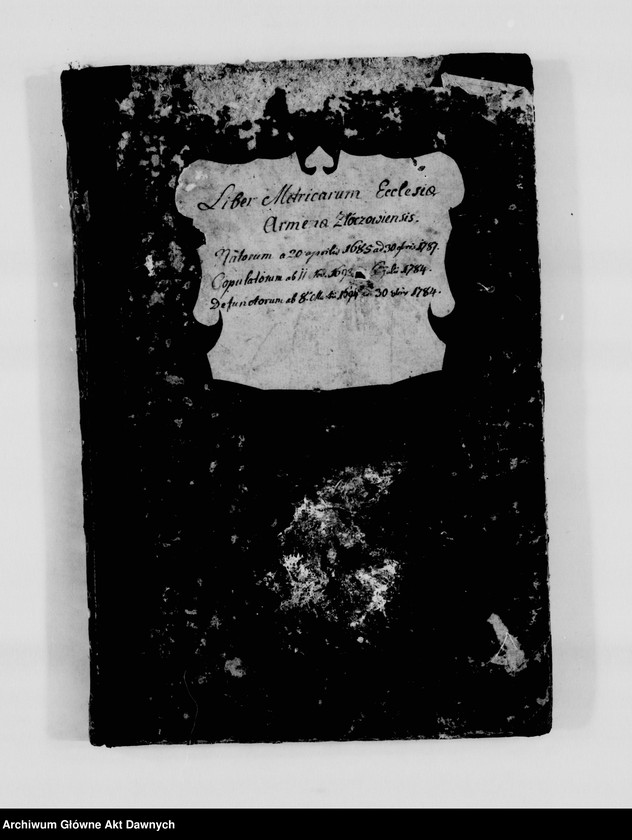 Liber Metricarum Ecclesiæ
Armenæ Złoczowiensis.
Natorum a 20 aprilis 1685 ad 30 apris 1787.
Copulatorum ab 11 1784.
Defunctorum ab 8 30 1784.
Archiwum Główne Akt Dawnych